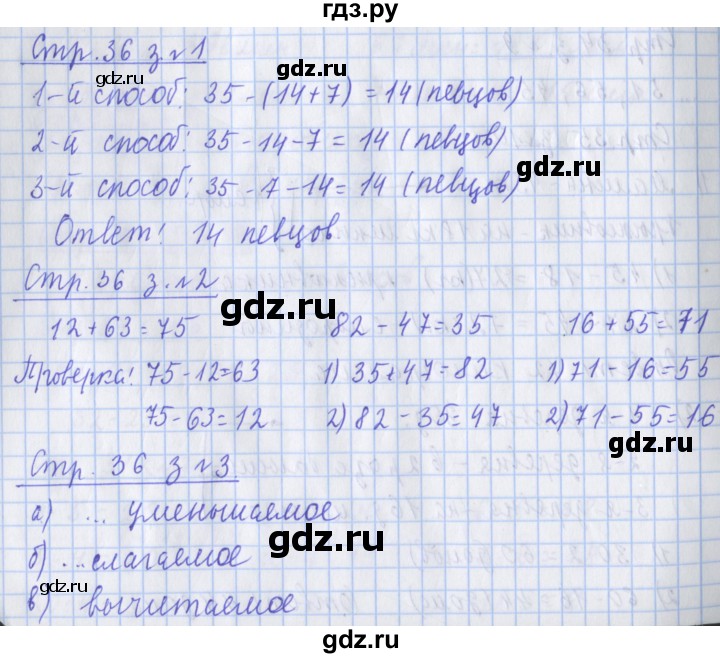 гдз.ру
Стр. 36 з. №1
1-й способ: 35-(14+7) = 14 (певцов)
2-й способ: 35-14-7 = 14 (певцов)
3-й способ: 35-7-14= 14 (певцов)
Ответ! 14 певцов.
Стр. 36 з. №2
12+63=75 82-47=35 16+55=71
Проверка! 75-12=63 1) 35+47=82 1) 71-16=55
75-63=12 2) 82-35=47 2) 71-55=16
Стр. 36 з №3
а) ... уменьшаемое
б) ... слагаемое
в) вычитаемое
gdz.ru
gdz.ru
gdz.ru
gdz.ru
gdz.ru
gdz.ru
gdz.ru
gdz.ru
gdz.ru
гдз.ру